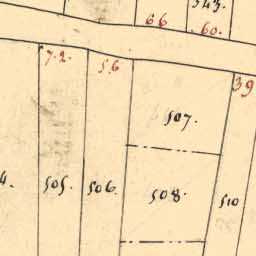 543.
66 60.
72 56 39
507.
4. 505. 506. 508. 510